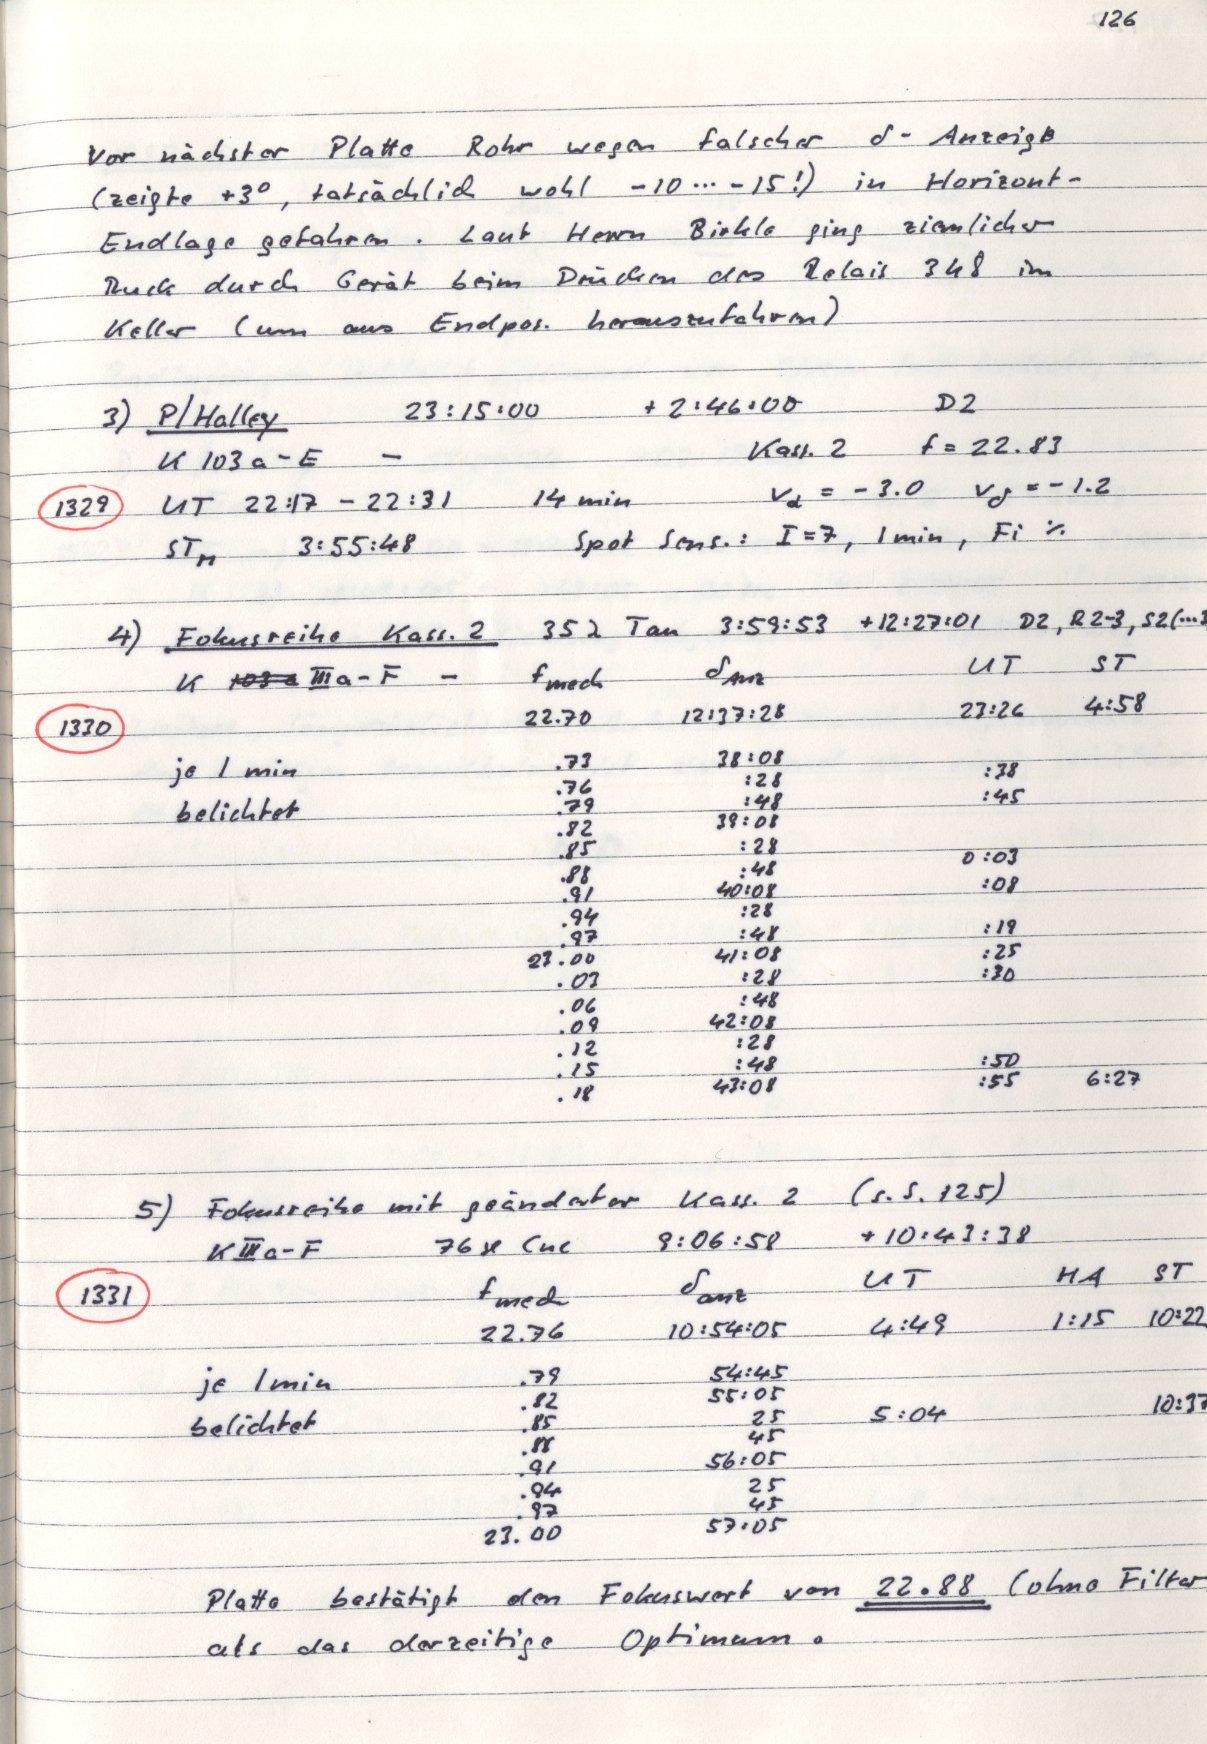 126
Vor nächster Platte Rohr wegen falscher δ- Anzeige
(zeigte +3°, tatsächlich wohl -10 ... -15!) in Horizont-
Endlage gefahren. Laut Herrn Birkle ging ziemlicher
Ruck durch Gerät beim Drücken des Relais 348 im
Keller (um aus Endpos. herauszufahren)
3) P/Halley 23:15:00 +2:46:00 D2
K 103a-E - Kass. 2 f=22.83
1329 UT 22:17 - 22:31 14 min vα = -3.0 vδ = -1.2
STM 3:55:48 Spot Sens.: I=7, 1min, Fi ⁒
4) Fokusreihe Kass. 2 35 λ Tau 3:59:53 +12:27:01 D2, R2-3, S2(...3
K 103a IIIa-F - fmech δAnz UT ST
1330 22.70 12:37:28 23:26 4:58
je 1 min .73 38:08
.76 :28 :38
belichtet .79 :48 :45
.82 39:08
.85 :28
.88 :48 0:03
.91 40:08 :08
.94 :28
.97 :48 :19
23.00 41:08 :25
.03 :28 :30
.06 :48
.09 42:08
.12 :28
.15 :48 :50
.18 43:08 :55 6:27
5) Fokusreihe mit geänderter Kass. 2 (s. S. 125)
K IIIa-F 76 κ Cnc 9:06:58 +10:43:38
1331 fmech δanz UT HA ST
22.76 10:54:05 4:49 1:15 10:22
je 1min .79 54:45
.82 55:05
belichtet .85 25 5:04 10:37
.88 45
.91 56:05
.94 25
.97 45
23.00 57:05
Platte bestätigt den Fokuswert von 22.88 (ohne Filter
als das derzeitige Optimum.